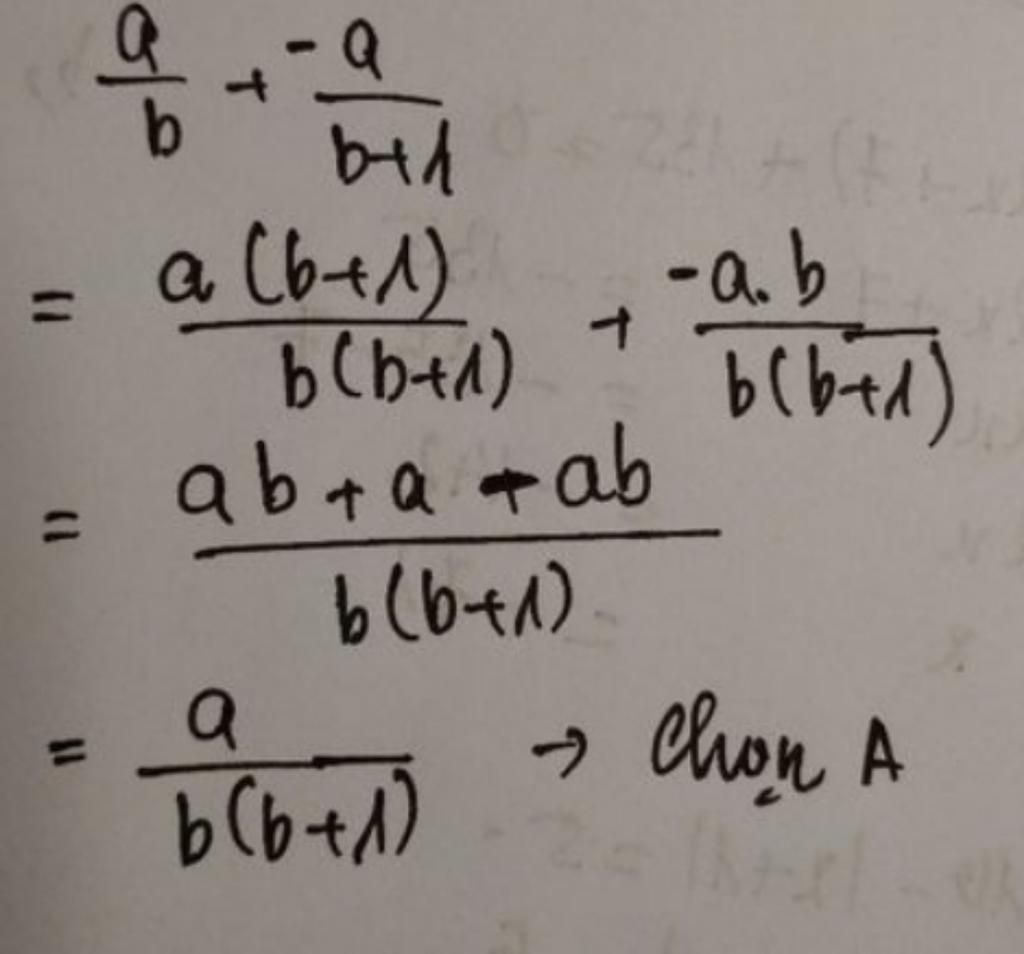 a/b + -a/b+1
= a(b+1)/b(b+1) + -a.b/b(b+1)
= ab + a - ab/b(b+1)
= a/b(b+1) → Chọn A